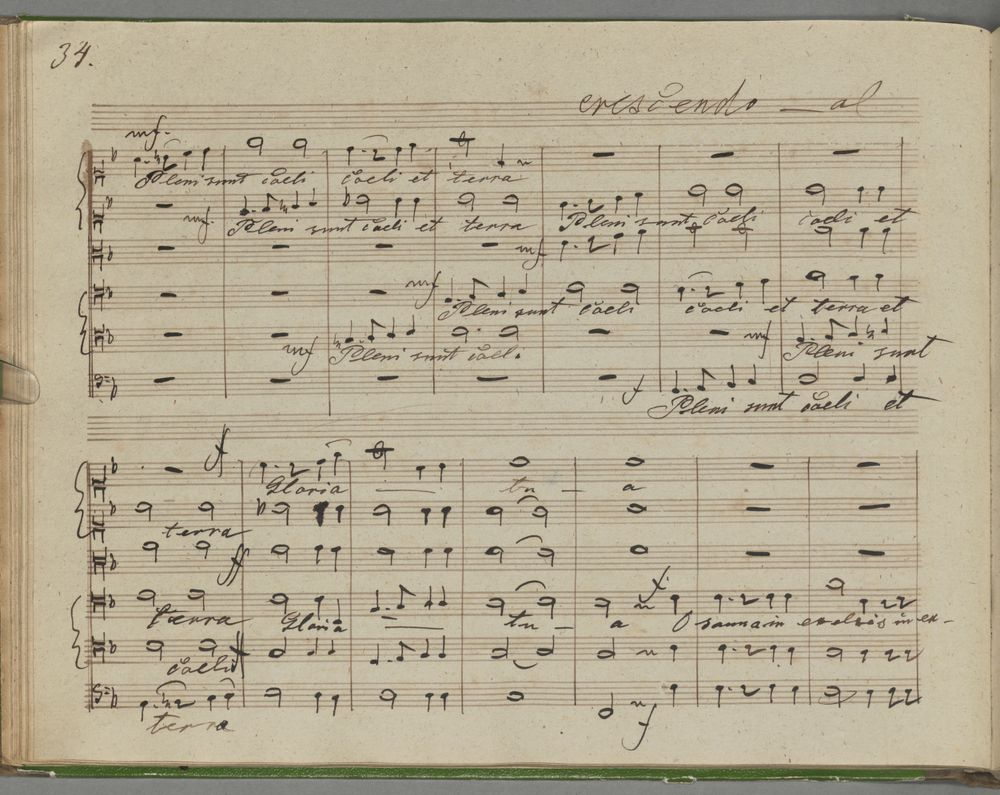 34.
crescendo — al
mf.
Pleni sunt coeli coeli et terra
mf Pleni sunt coeli et terra Pleni sunt coeli coeli et
mf
mf Pleni sunt coeli coeli et terra et
mf Pleni sunt coeli mf Pleni sunt
f Pleni sunt coeli et
ff
Gloria — tu — a
terra
ff
f
terra Gloria — tu — a Osanna in excelsis in ex-
coeli
terra f